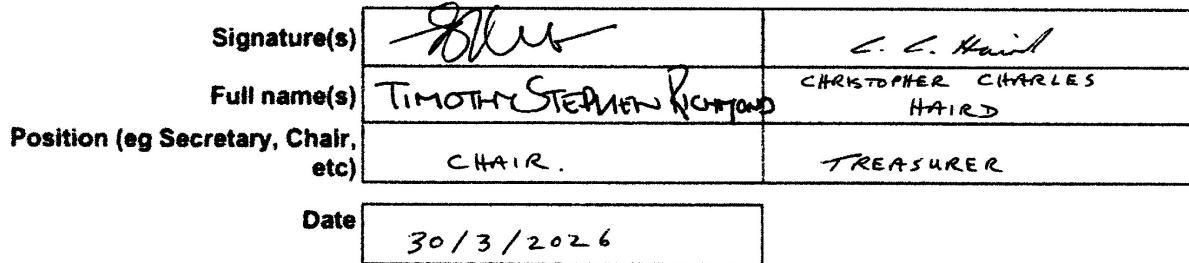 Signature(s) C. C. Haird
Full name(s) TIMOTHY STEPHEN RICHMOND CHRISTOPHER CHARLES
HAIRD
Position (eg Secretary, Chair,
etc) CHAIR. TREASURER
Date 30/3/2026